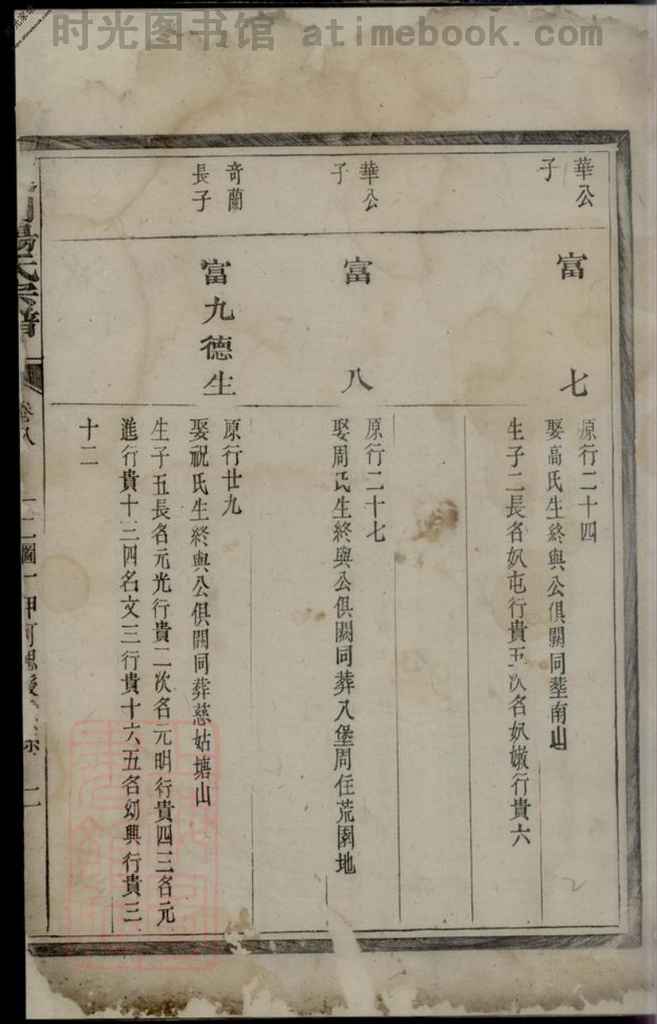 时光图书馆 atimebook.com
華公
子
富七
原行二十四
娶高氏生終與公俱闕同塟南山
生子二長名奴屯行貴五次名奴嫩行貴六
華公
子
富八
原行二十七
娶周氏生終與公俱闕同葬八堡周住荒園地
奇蘭
長子
富九德生
原行廿九
娶祝氏生終與公俱闕同葬慈姑塘山
生子五長名元光行貴二次名元明行貴四三名元
進行貴十三四名文三行貴十六五名幼興行貴三
十二
湯氏宗譜
卷八